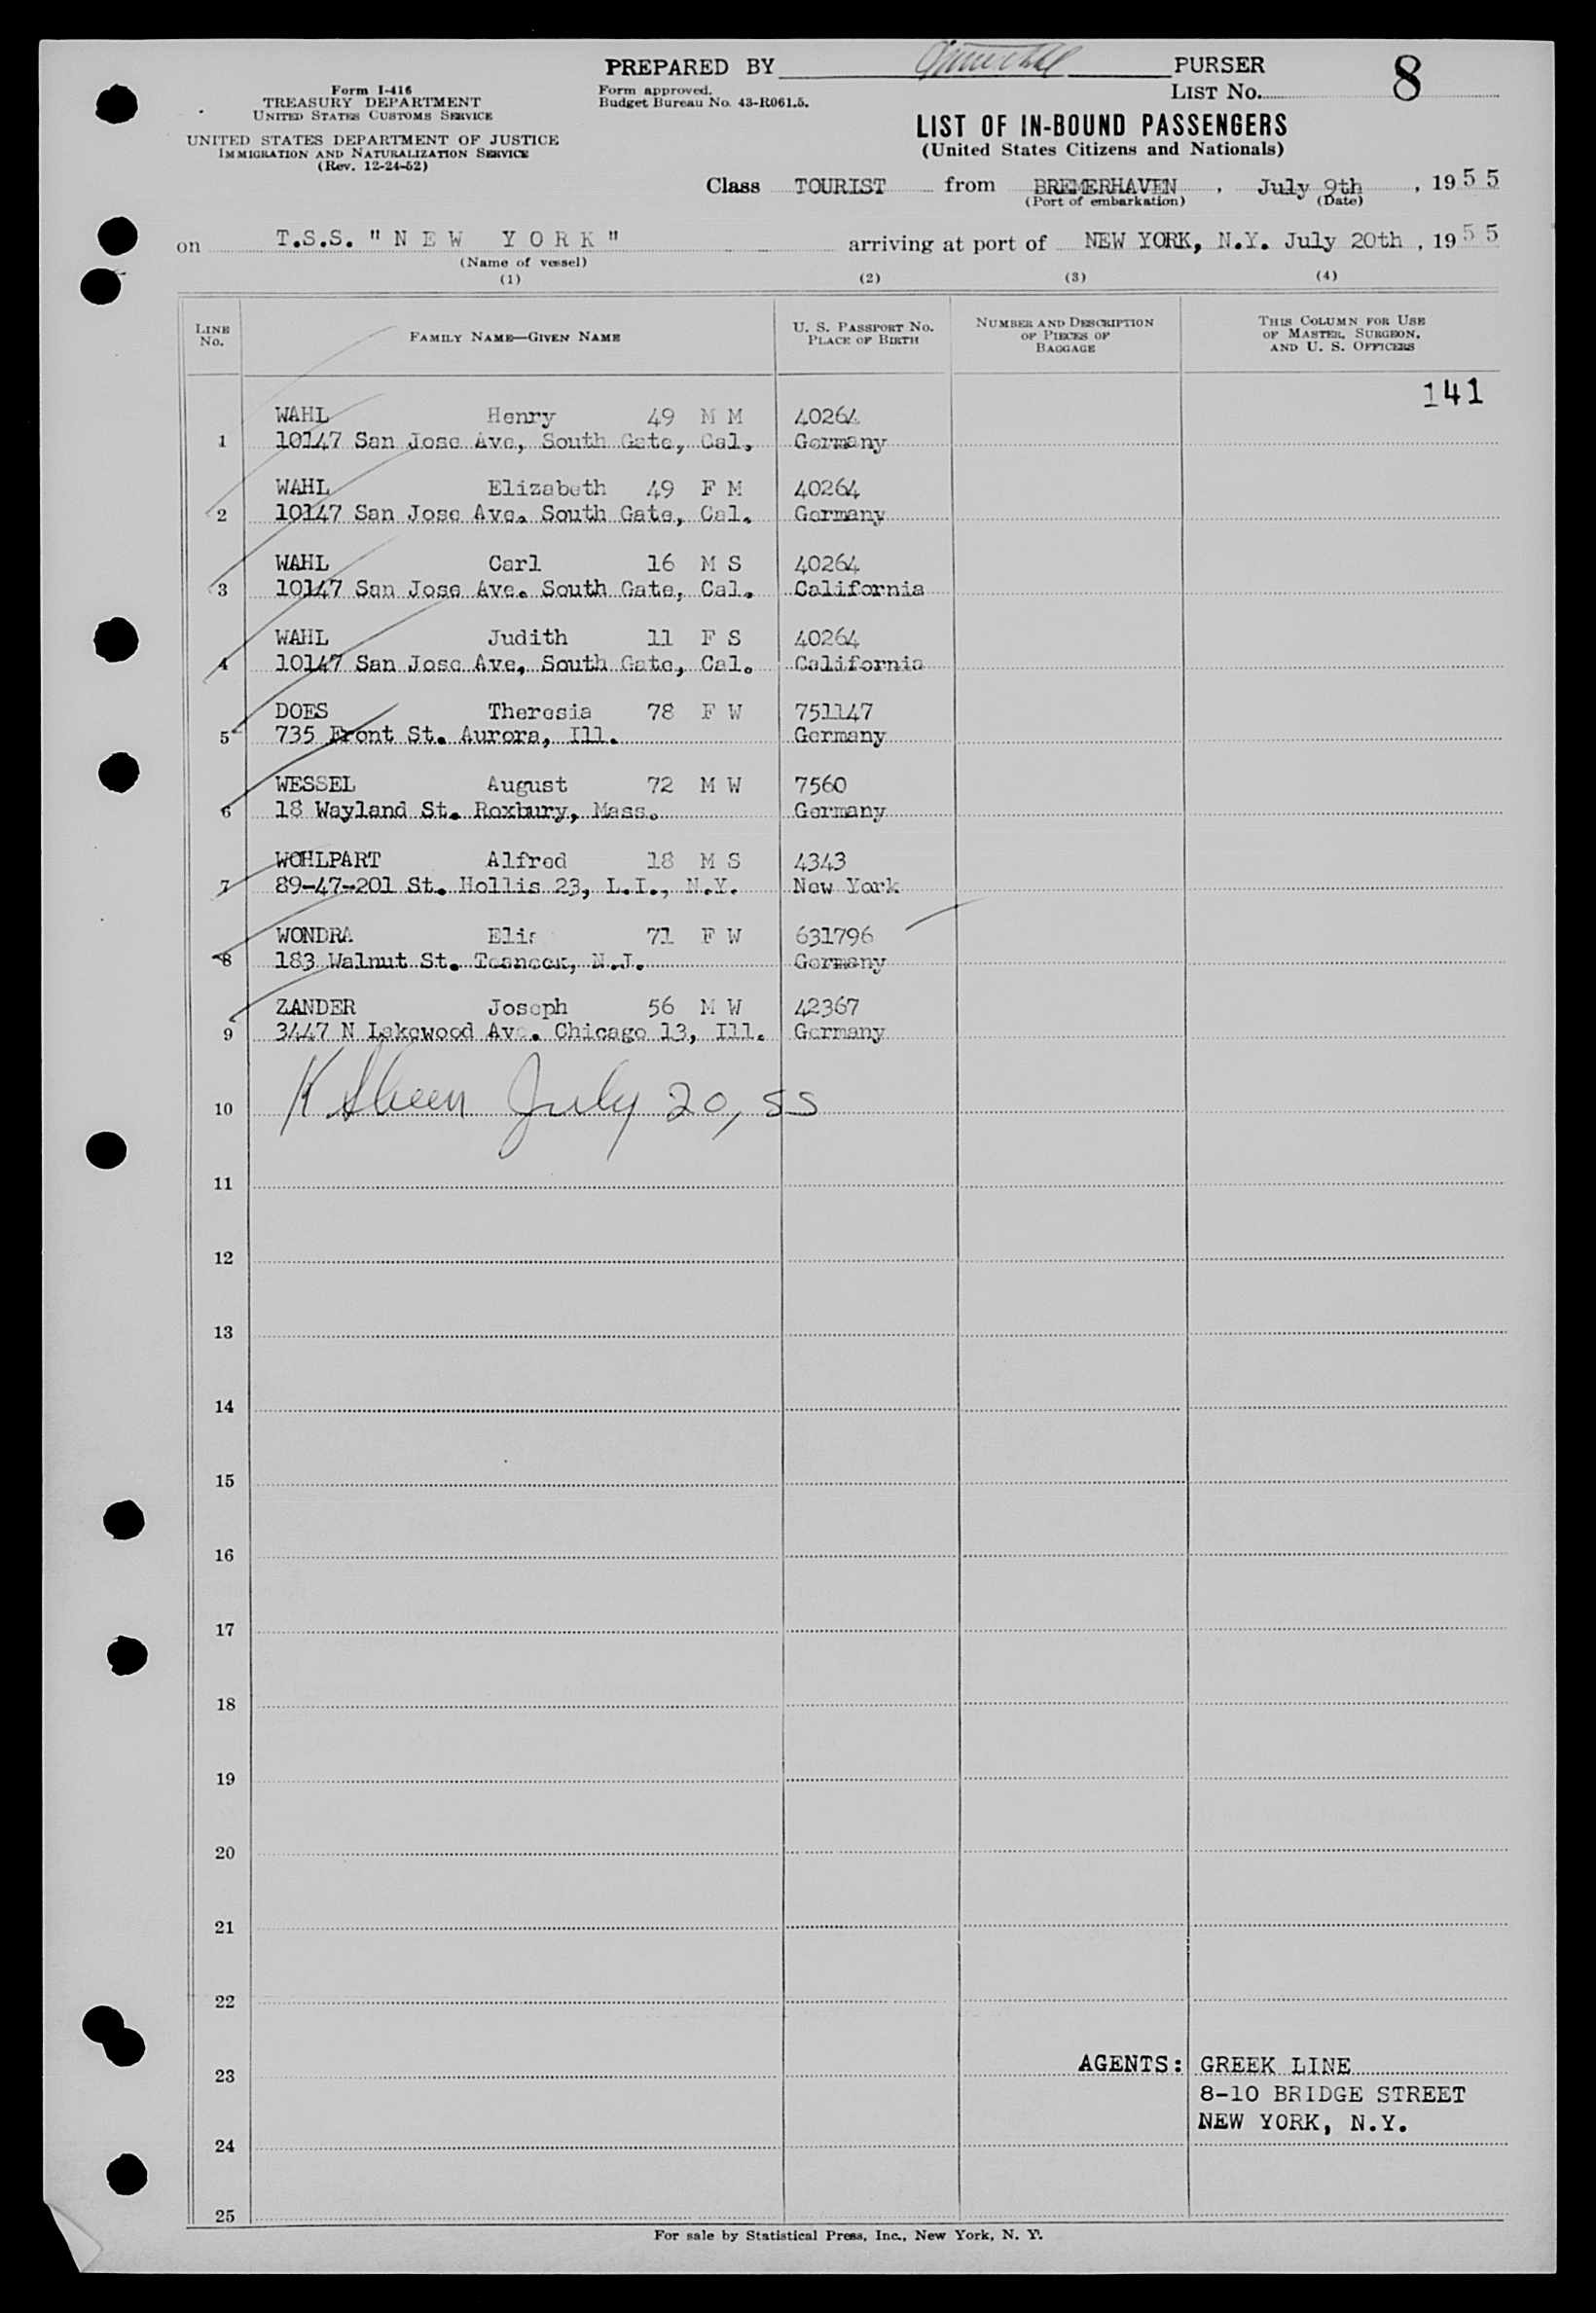 PREPARED BY PURSER
Form I-416
TREASURY DEPARTMENT
UNITED STATES CUSTOMS SERVICE
UNITED STATES DEPARTMENT OF JUSTICE
IMMIGRATION AND NATURALIZATION SERVICE
(Rev. 12-24-52)
Form approved.
Budget Bureau No. 43-R061.5.
LIST No. 8
LIST OF IN-BOUND PASSENGERS
(United States Citizens and Nationals)
Class TOURIST from BREMERHAVEN, July 9th, 1955
(Port of embarkation) (Date)
on T.S.S. "NEW YORK" arriving at port of NEW YORK, N.Y. July 20th, 1955
(Name of vessel)
(1) (2) (3) (4)
LINE No. FAMILY NAME—GIVEN NAME U. S. PASSPORT No. PLACE OF BIRTH NUMBER AND DESCRIPTION OF PIECES OF BAGGAGE THIS COLUMN FOR USE OF MASTER, SURGEON, AND U. S. OFFICERS
141
WAHL Henry 49 M M 40264
1 10147 San Jose Ave, South Gate, Cal, Germany
WAHL Elizabeth 49 F M 40264
2 10147 San Jose Ave. South Gate, Cal. Germany
WAHL Carl 16 M S 40264
3 10147 San Jose Ave. South Gate, Cal. California
WAHL Judith 11 F S 40264
4 10147 San Jose Ave, South Gate, Cal. California
DOES Theresia 78 F W 751147
5 735 Front St. Aurora, Ill. Germany
WESSEL August 72 M W 7560
6 18 Wayland St. Roxbury, Mass. Germany
WOHLPART Alfred 18 M S 4343
7 89-47-201 St. Hollis 23, L.I., N.Y. New York
WONDRA 71 F W 631796
8 183 Walnut St. Teaneck, N.J. Germany
ZANDER Joseph 56 M W 42367
9 3447 N Lakewood Ave. Chicago 13, Ill. Germany
10 K Sheen July 20, 55
11
12
13
14
15
16
17
18
19
20
21
22
23 AGENTS: GREEK LINE
8-10 BRIDGE STREET
NEW YORK, N.Y.
24
25
For sale by Statistical Press, Inc., New York, N. Y.